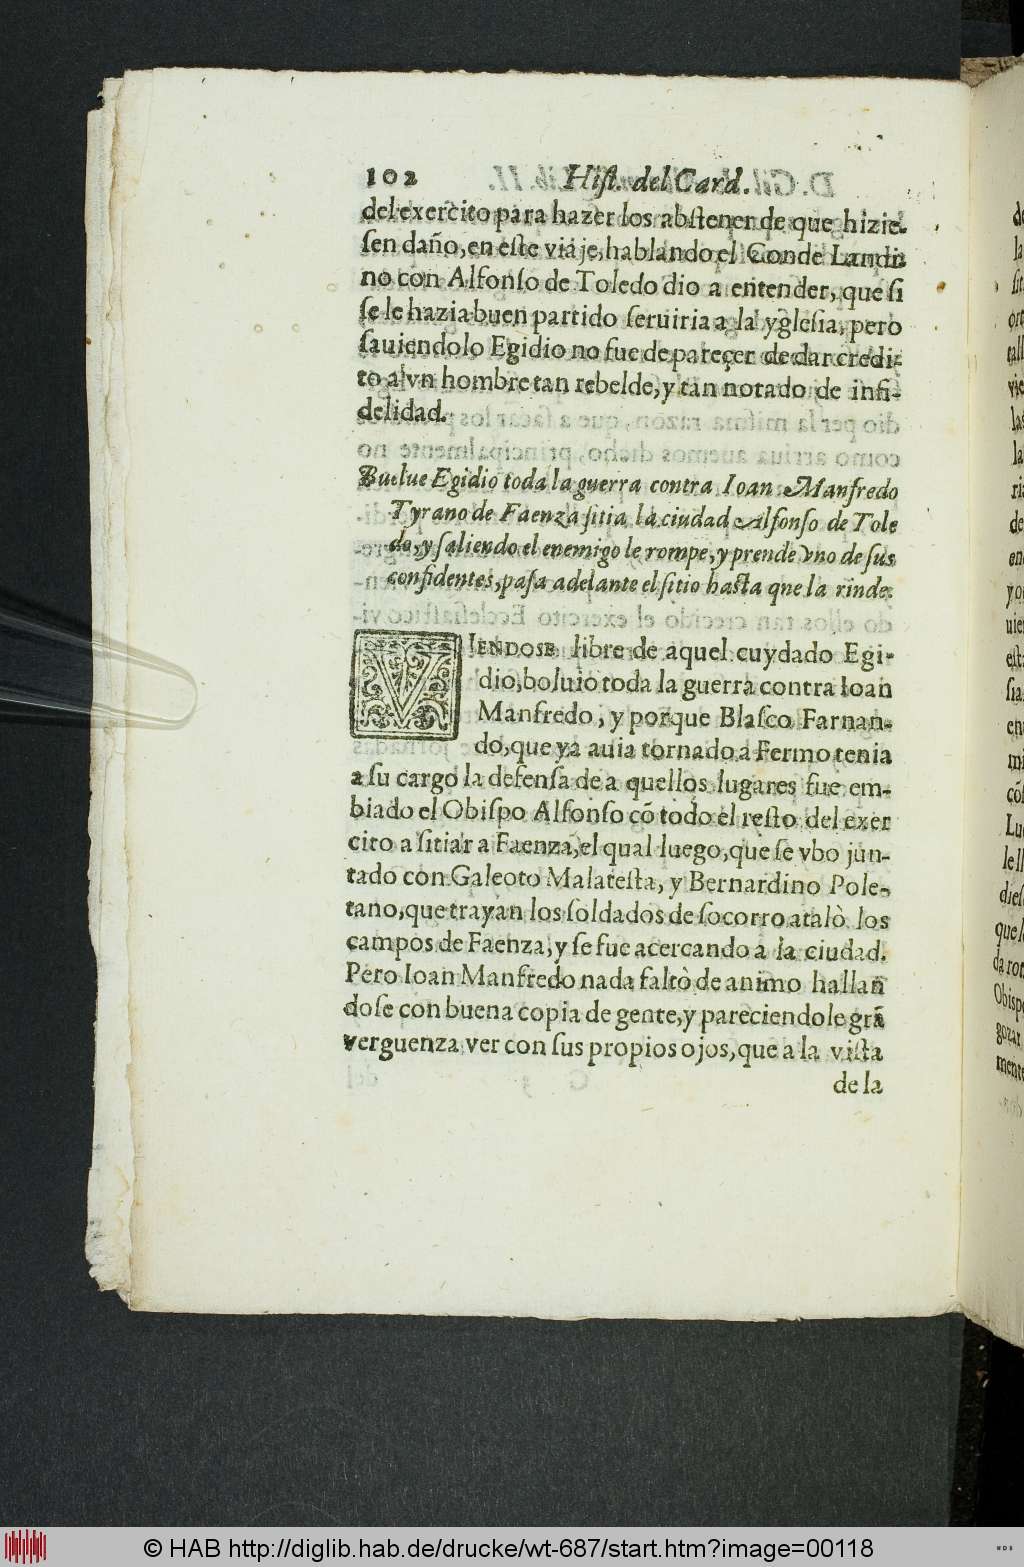 102 Hiſt. del Card.
del exercito para hazer los abſtener de que hizie-
ſen daño, en eſte viaje, hablando el Conde Landi
no con Alfonſo de Toledo dio a entender, que ſi
ſe le hazia buen partido ſeruiria a la ygleſia, pero
ſauiendolo Egidio no fue de pareçer de dar credi-
to a vn hombre tan rebelde, y tan notado de infi-
delidad.
Buelue Egidio toda la guerra contra Ioan Manfredo
Tyrano de Faenza ſitia la ciudad Alfonſo de Tole
do, y ſaliendo el enemigo le rompe, y prende vno de ſus
confidentes, paſa adelante el ſitio haſta que la rinde.
VIENDOSE libre de aquel cuydado Egi-
dio, boluio toda la guerra contra Ioan
Manfredo, y porque Blaſco Farnan-
do, que ya auia tornado á Fermo tenia
a ſu cargo la defenſa de a quellos lugares fue em-
biado el Obiſpo Alfonſo cõ todo el reſto del exer
cito a ſitiar a Faenza, el qual luego, que ſe vbo jun-
tado con Galeoto Malateſta, y Bernardino Pole-
tano, que trayan los ſoldados de ſocorro atalò los
campos de Faenza, y ſe fue acercando a la ciudad.
Pero Ioan Manfredo nada faltò de animo hallan
doſe con buena copia de gente, y pareciendole grã
verguenza ver con ſus propios ojos, que a la viſta
de la
© HAB http://diglib.hab.de/drucke/wt-687/start.htm?image=00118